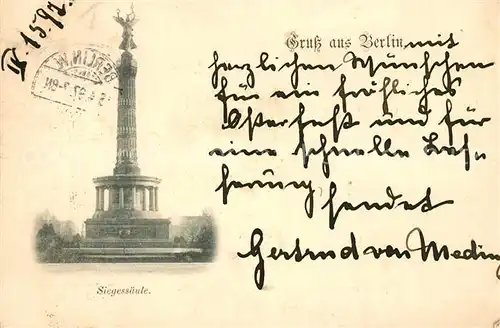 IV. 15. 92.
BERLIN W.
Gruß aus Berlin mit
herzlichen Wünschen
für ein fröhliches
Osterfest und für
eine schnelle Bes-
serung
sendet
Gertrud von Meding
Siegessäule.